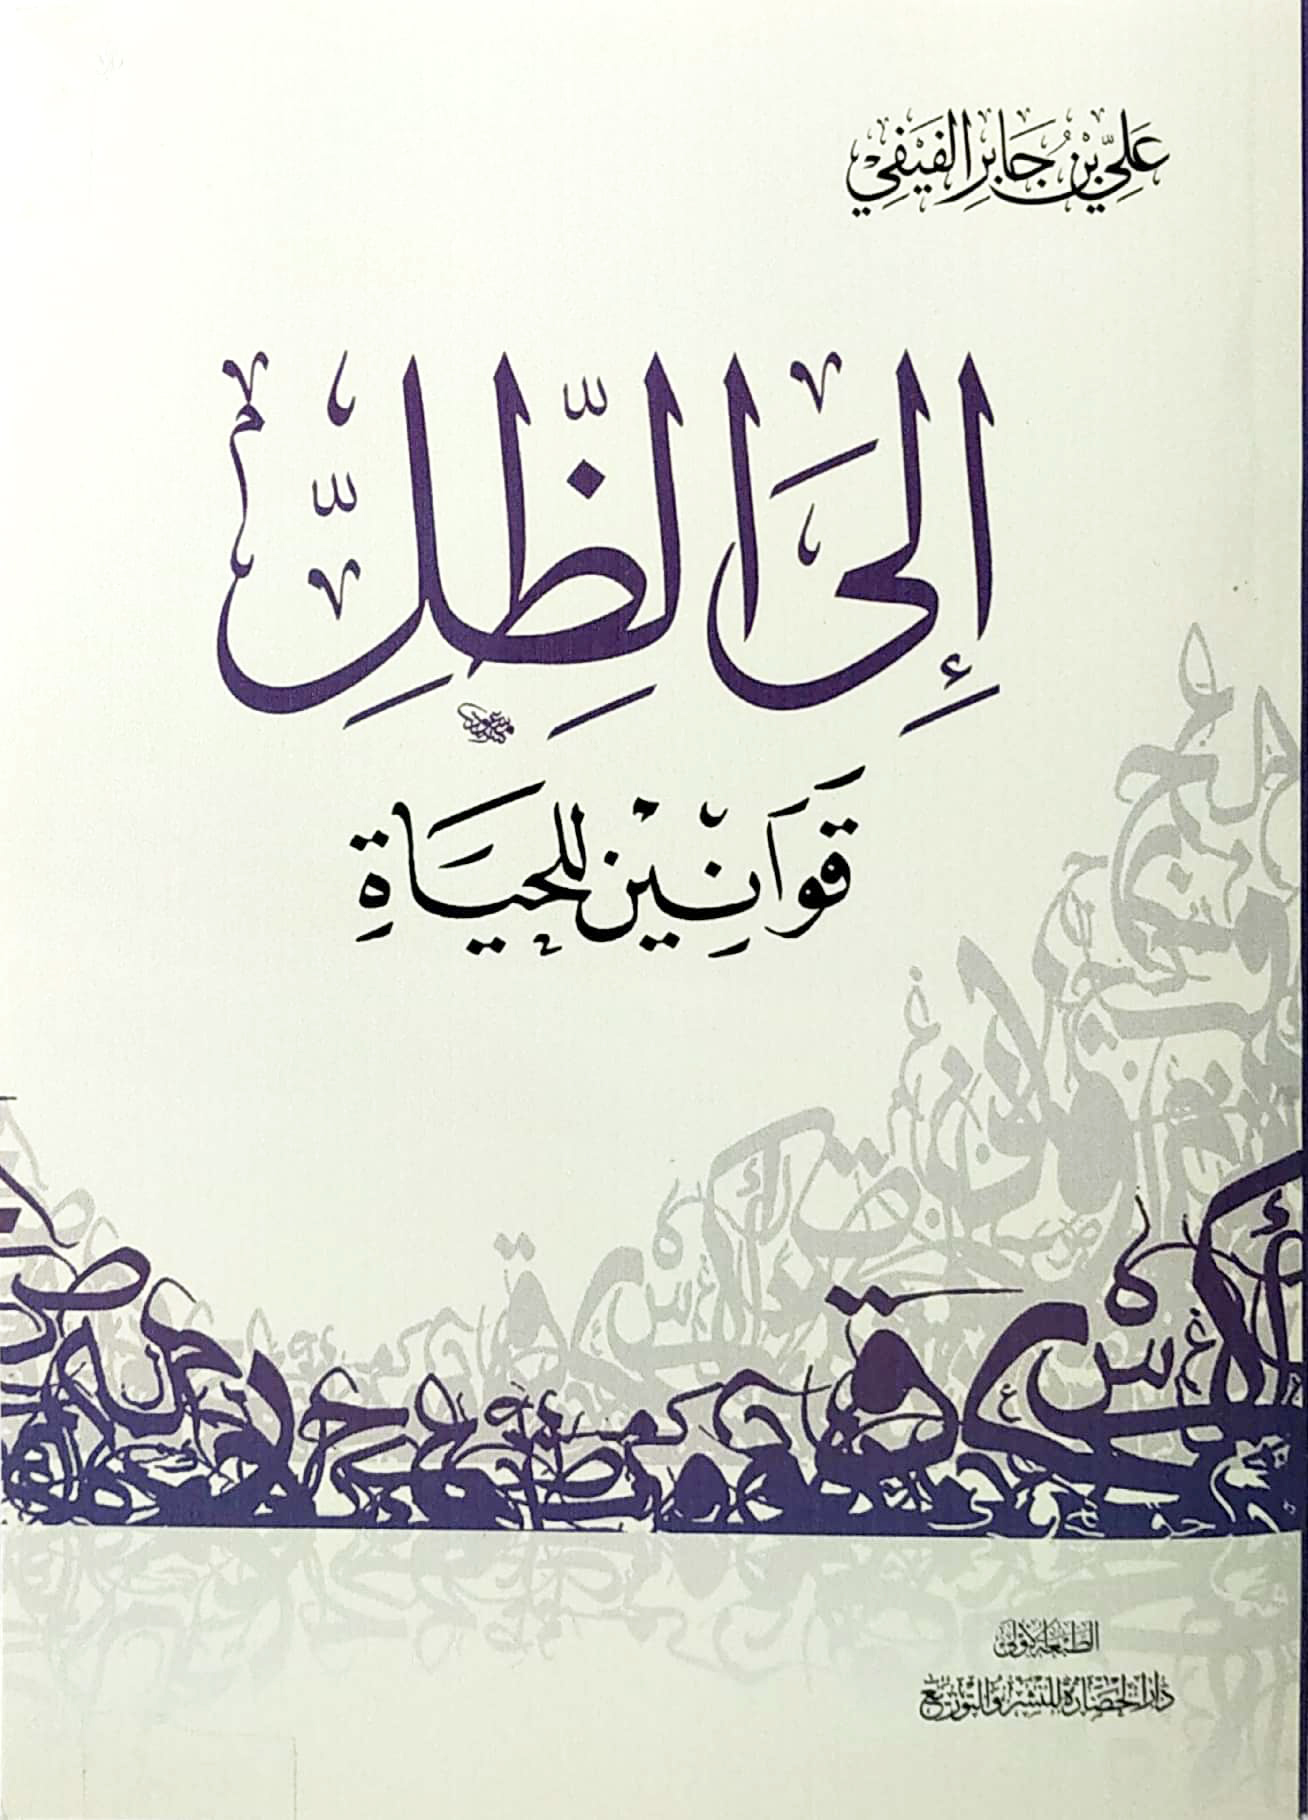 عَلِيّ بْنُ جَابِرِ الفَيْفِيّ
إِلَى الظِّلِّ
قَوَانِيْن لِلحَيَاةِ
الطبعة الأولى
دار الحضارة للنشر والتوزيع